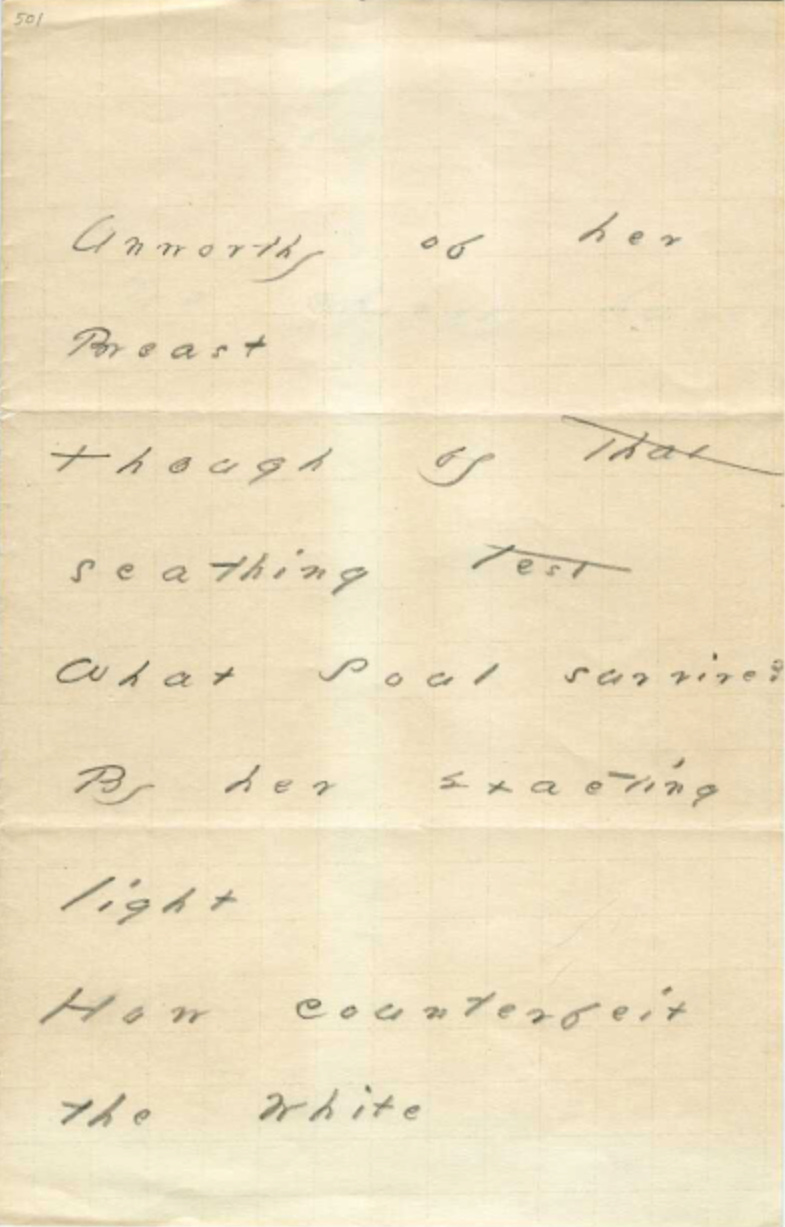 501
Unworthy of her
Breast
though by that
scathing test
What Soul survive?
By her exacting
light
How counterfeit
the white